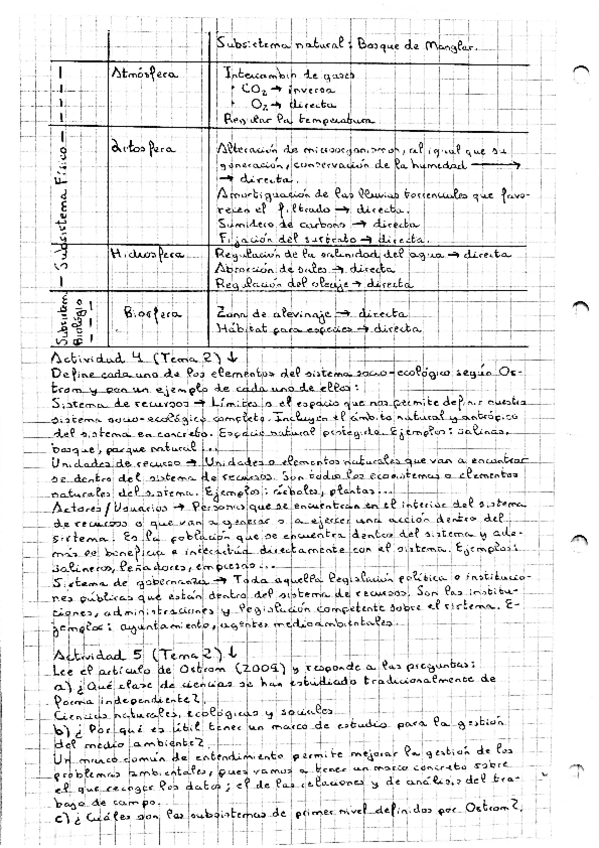 Subsistema natural: Bosque de Manglar.
Subsistema Físico
Atmósfera
Intercambio de gases
· CO₂ → inversa
· O₂ → directa
Regular la temperatura
Litosfera
Alteración de microorganismos, al igual que su
generación, conservación de la humedad →
→ directa.
Amortiguación de las lluvias torrenciales que favo-
recen el filtrado → directa.
Sumidero de carbono → directa
Fijación del sustrato → directa.
Hidrosfera
Regulación de la salinidad del agua → directa
Absorción de sales → directa
Regulación del oleaje → directa
Subsistema
Biológico
Biosfera
Zona de alevinaje → directa
Hábitat para especies → directa
Actividad 4 (Tema 2) ↓
Define cada uno de los elementos del sistema socio-ecológico según Os-
trom y pon un ejemplo de cada uno de ellos:
Sistema de recursos → Límites o el espacio que nos permite definir nuestro
sistema socio-ecológico completo. Incluyen el ámbito natural y antrópico
del sistema en concreto. Espacio natural protegido. Ejemplos: salinas,
bosque, parque natural...
Unidades de recurso → Unidades o elementos naturales que van a encontrar
se dentro del sistema de recursos. Son todos los ecosistemas o elementos
naturales del sistema. Ejemplos: árboles, plantas...
Actores/Usuarios → Personas que se encuentran en el interior del sistema
de recursos o que van a generar o a ejercer una acción dentro del
sistema. Es la población que se encuentra dentro del sistema y ade-
más se beneficia e interactúa directamente con el sistema. Ejemplos:
salineros, leñadores, empresas...
Sistema de gobernanza → Toda aquella legislación política o institucio-
nes públicas que están dentro del sistema de recursos. Son las institu-
ciones, administraciones y legislación competente sobre el sistema. E-
jemplos: ayuntamiento, agentes medioambientales
Actividad 5 (Tema 2) ↓
Lee el artículo de Ostrom (2009) y responde a las preguntas:
a) ¿Qué clase de ciencias se han estudiado tradicionalmente de
forma independiente?
Ciencias naturales, ecológicas y sociales
b) ¿Por qué es útil tener un marco de estudio para la gestión
del medio ambiente?
Un marco común de entendimiento permite mejorar la gestión de los
problemas ambientales, pues vamos a tener un marco concreto sobre
el que recoger los datos; el de las relaciones y de análisis del tra-
bajo de campo.
c) ¿Cuáles son los subsistemas de primer nivel definidos por Ostrom?